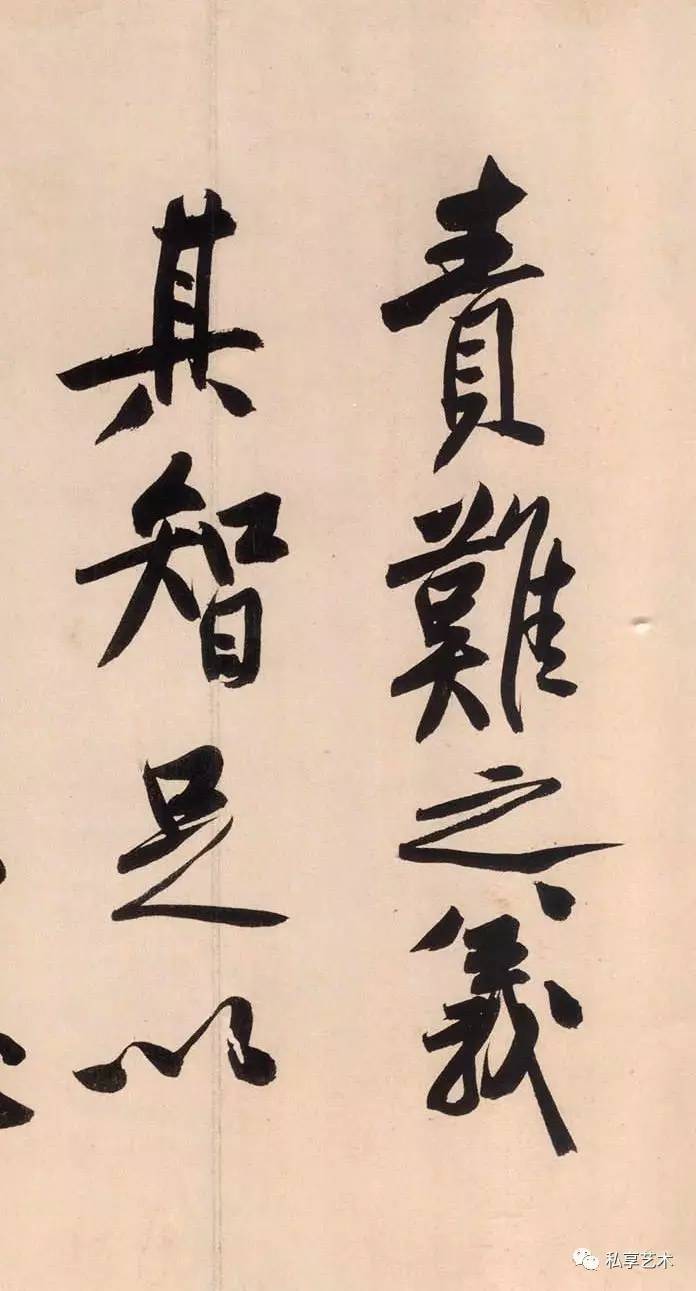 責難之義
其智足以
私享艺术